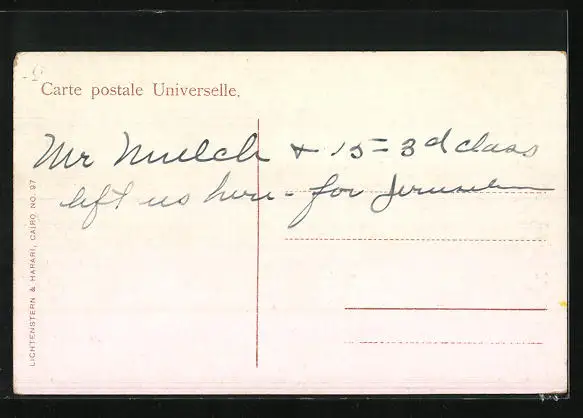 Carte postale Universelle.
Mr Mulch + 15 = 3d class
left us here - for Jerusalem
LICHTENSTERN & HARARI, CAIRO NO. 97